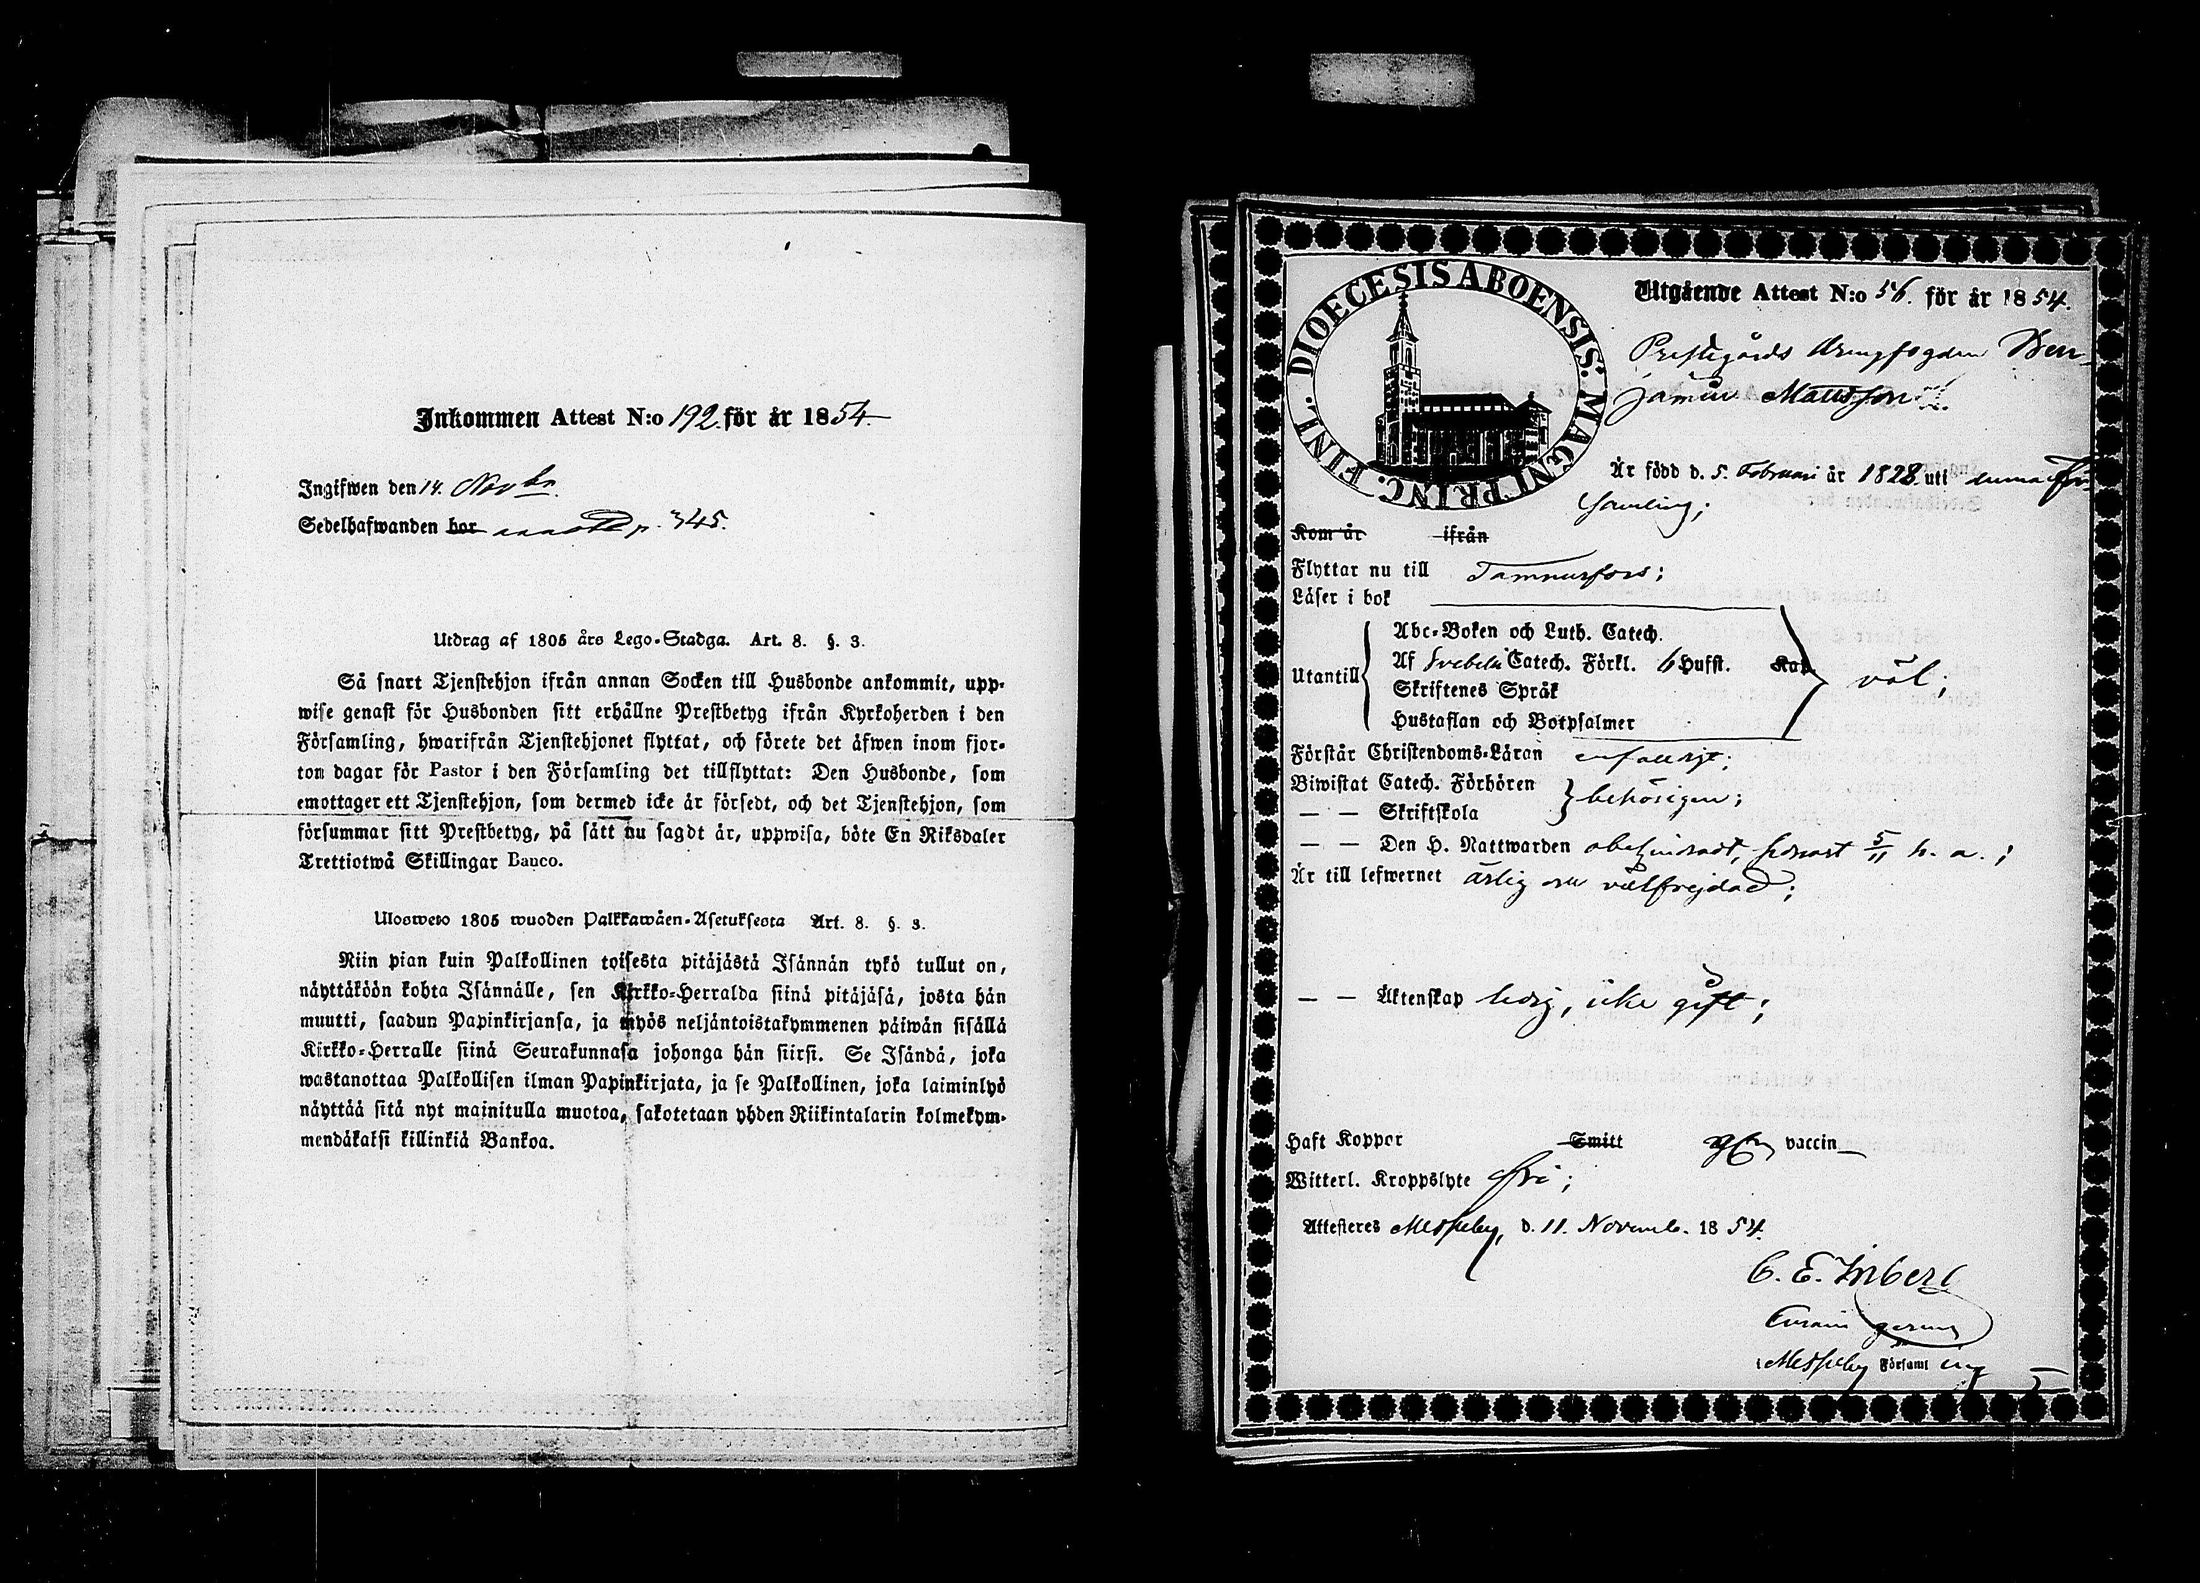 Inkommen Attest N:o 192. för år 1854
Ingifwen den 14. Novbr.
Sedelhafwanden bor p. 345.
Utdrag af 1805 års Lego-Stadga. Art. 8. §. 3.
Så snart Tjenstehjon ifrån annan Socken till Husbonde ankommit, upp-
wise genast för Husbonden sitt erhållne Prestbetyg ifrån Kyrkoherden i den
Församling, hwarifrån Tjenstehjonet flyttat, och förete det äfwen inom fjor-
ton dagar för Pastor i den Församling det tillflyttat: Den Husbonde, som
emottager ett Tjenstehjon, som dermed icke är försedt, och det Tjenstehjon, som
försummar sitt Prestbetyg, på sätt nu sagdt är, uppwisa, böte En Riksdaler
Trettiotwå Skillingar Banco.
Ulosweto 1805 wuoden Palkkawäen-Asetuksesta Art. 8. §. 3.
Niin pian kuin Palkollinen toisesta pitäjästä Isännän tykö tullut on,
näyttäköön kohta Isännälle, sen Kirkko-Herralda siinä pitäjäsä, josta hän
muutti, saadun Papinkirjansa, ja myös neljäntoistakymmenen päiwän sisällä
Kirkko-Herralle siinä Seurakunnasa johonga hän siirsi. Se Isändä, joka
wastanottaa Palkollisen ilman Papinkirjata, ja se Palkollinen, joka laiminlyö
näyttää sitä nyt mainitulla muotoa, sakotetaan yhden Riikintalarin kolmekym-
mendäkaksi killinkiä Bankoa.
DIOECESIS ABOENSIS: MAGNI PRINC. FINL.
Utgående Attest N:o 56. för år 1854.
Prestegårds Drengfogden Ben-
jamin Mattsson
Är född d. 5. Februari år 1828 uti denna För-
samling;
Kom år ifrån
Flyttar nu till Tammerfors;
Läser i bok
Abc-Boken och Luth. Catech.
Utantill Af Svebelii Catech. Förkl. 6 Hufst. Kap. väl;
Skriftenes Språk
Hustaflan och Botpsalmer
Förstår Christendoms-Läran enfaldigt;
Biwistat Catech. Förhören behörigen;
— — Skriftskola
— — Den H. Nattwarden obehindradt, senast 5/11 h. a.;
Är till lefwernet ärlig och välfrejdad;
— — Äktenskap ledig, icke gift;
Haft Koppor Smitt gm vaccin
Witterl. Kroppslyte fri;
Attesteres Messuby, d. 11. Novemb. 1854.
C. E.
Curam gerens
Messuby Församling